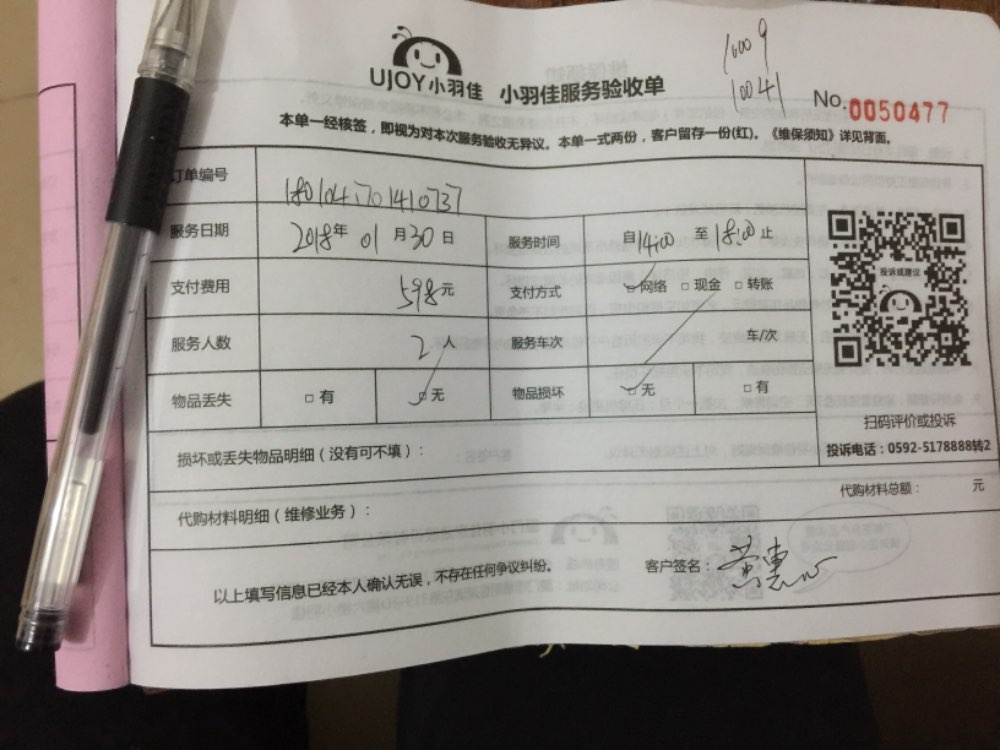 10009
10041
UJOY小羽佳 小羽佳服务验收单
No.0050477
本单一经核签，即视为对本次服务验收无异议。本单一式两份，客户留存一份(红)。《维保须知》详见背面。
订单编号 1801041701410737
服务日期 2018年 01月30日 服务时间 自14:00 至18:00止
支付费用 598元 支付方式 □网络 □现金 □转账
服务人数 2人 服务车次 车/次
物品丢失 □有 □无 物品损坏 □无 □有
投诉或建议
扫码评价或投诉
投诉电话：0592-5178888转2
损坏或丢失物品明细（没有可不填）：
代购材料明细（维修业务）：
代购材料总额： 元
以上填写信息已经本人确认无误，不存在任何争议纠纷。
客户签名：